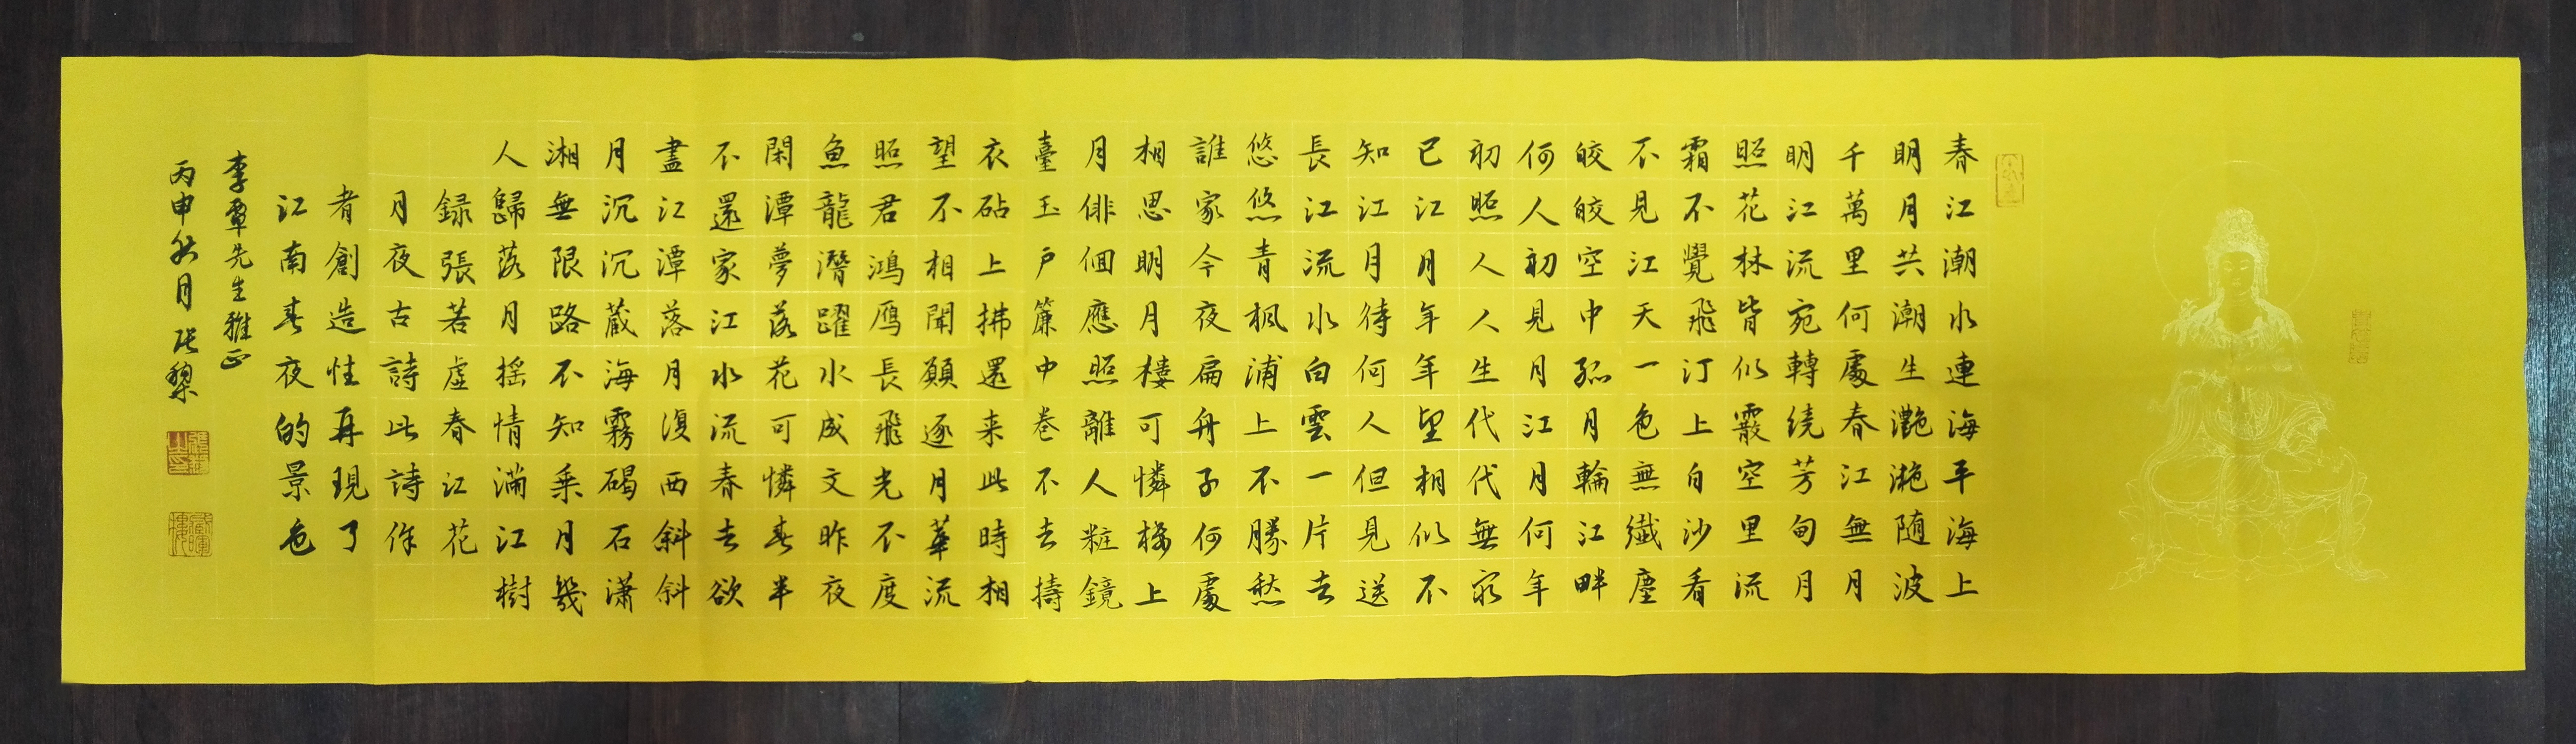 春江潮水連海平海上
明月共潮生灧灧随波
千萬里何處春江無月
明江流宛轉繞芳甸月
照花林皆似霰空里流
霜不覺飛汀上白沙看
不見江天一色無纖塵
皎皎空中孤月輪江畔
何人初見月江月何年
初照人人生代代無窮
已江月年年望相似不
知江月待何人但見送
長江流水白雲一片去
悠悠青楓浦上不勝愁
誰家今夜扁舟子何處
相思明月樓可憐樓上
月俳佪應照離人粧鏡
臺玉户簾中卷不去擣
衣砧上拂還来此時相
望不相聞願逐月華流
照君鴻雁長飛光不度
魚龍潛躍水成文昨夜
閑潭夢落花可憐春半
不還家江水流春去欲
盡江潭落月復西斜斜
月沉沉藏海霧碣石潇
湘無限路不知乘月幾
人歸落月摇情滿江樹
録張若虚春江花
月夜古詩此詩作
者創造性再現了
江南春夜的景色
李覃先生雅正
丙申秋月張黎